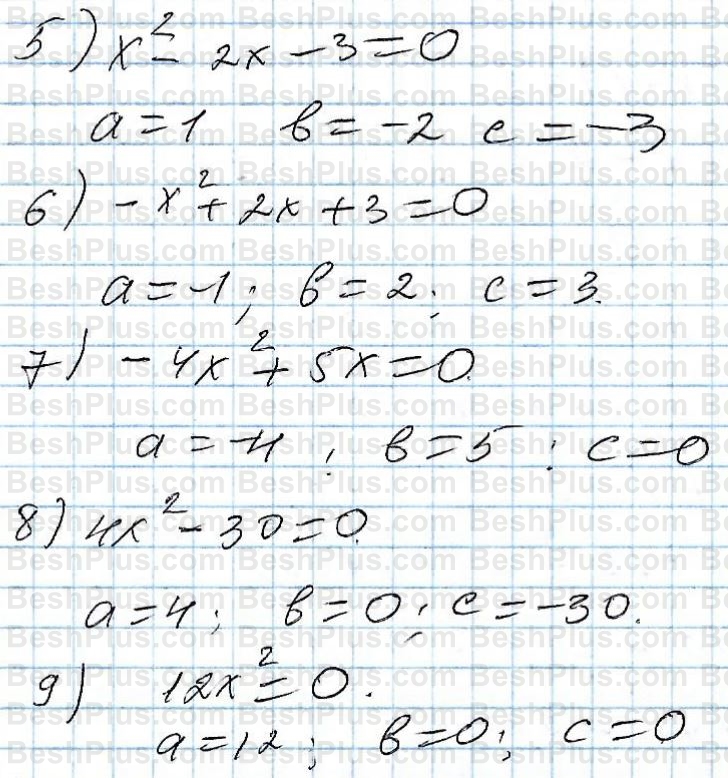 5) x² - 2x - 3 = 0
a = 1 в = -2 c = -3
6) -x² + 2x + 3 = 0
a = -1; в = 2; c = 3.
7) -4x² + 5x = 0.
a = -4; в = 5; c = 0
8) 4x² - 30 = 0.
a = 4; в = 0; c = -30.
9) 12x² = 0.
a = 12; в = 0; c = 0
BeshPlus.com